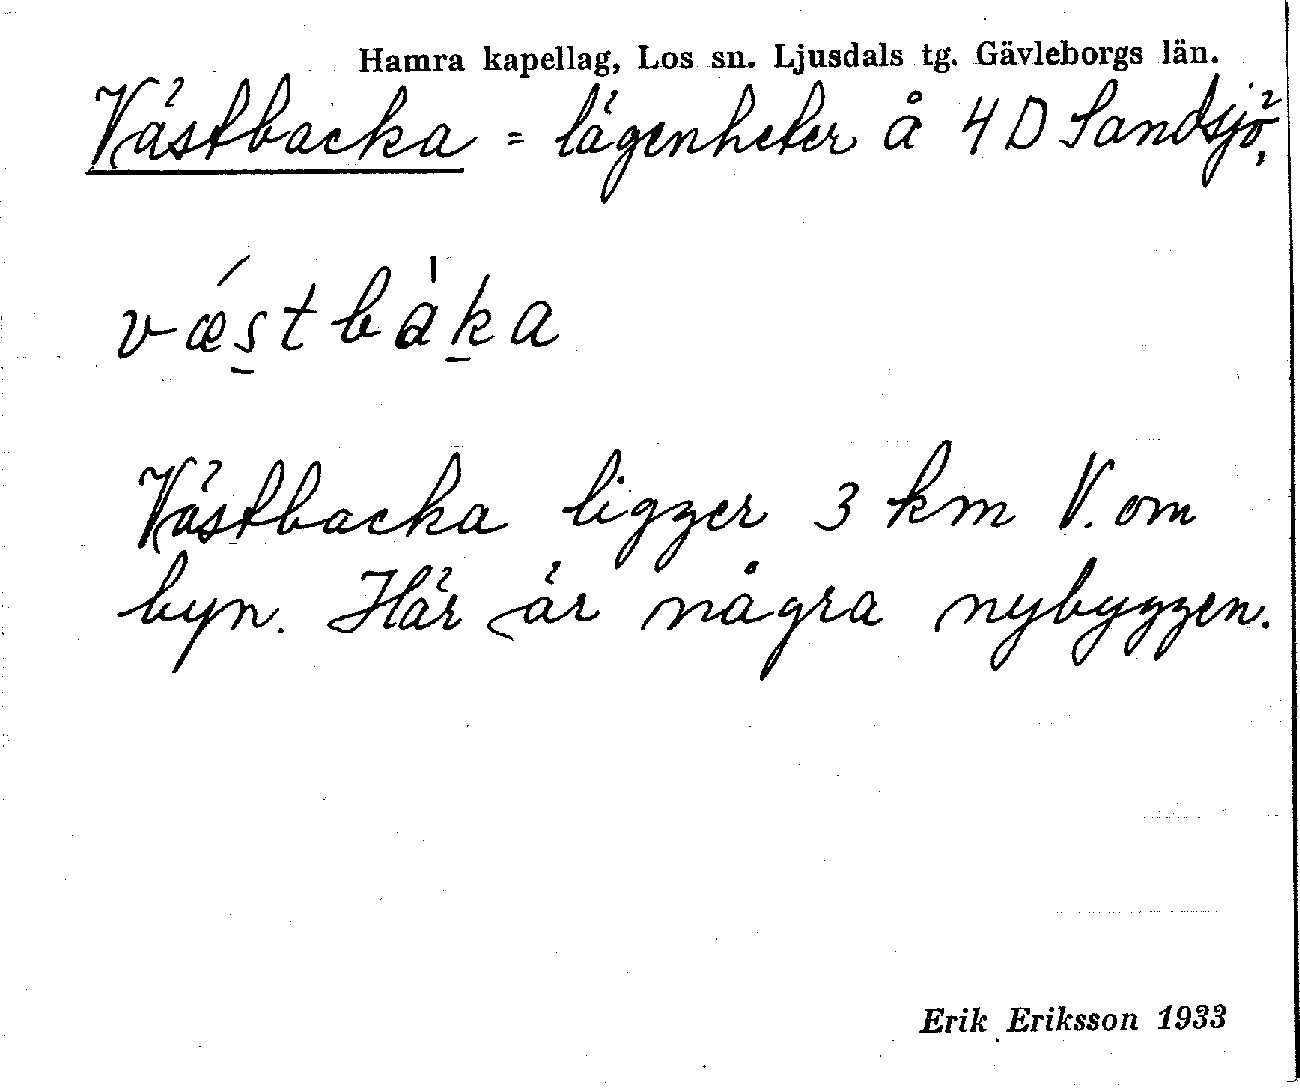 Hamra kapellag, Los sn. Ljusdals tg. Gävleborgs län.
Västbacka = lägenheter å 4D Sandsjö,
vǽs̱tbàḵa
Västbacka ligger 3 km V. om
byn. Här är några nybyggen.
Erik Eriksson 1933